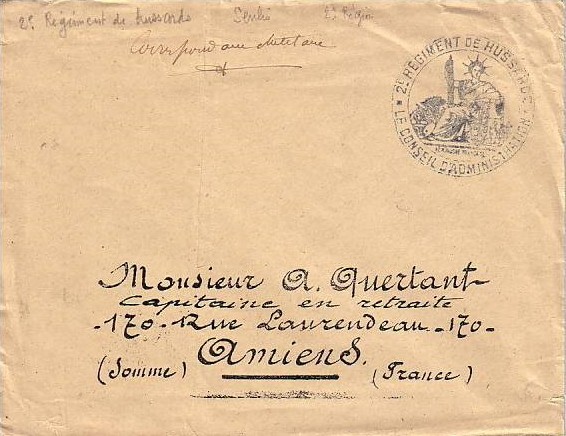 2e Régiment de hussards Senlis 2e Région
Correspondance militaire
2E RÉGIMENT DE HUSSARDS
LE CONSEIL D'ADMINISTRATION
Monsieur A. Quertant
Capitaine en retraite
-170-Rue Laurendeau-170-
Amiens.
(Somme) (France)